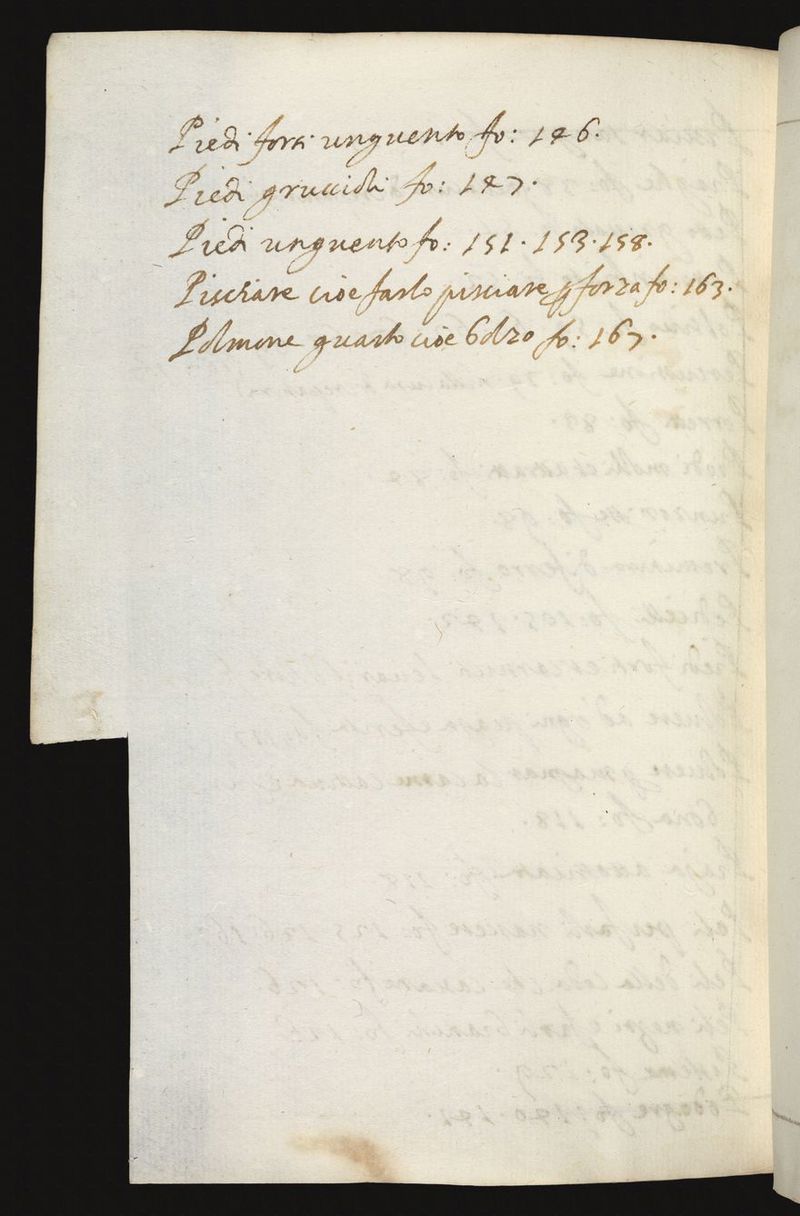 Piedi forti unguento fo: 146.
Piedi gruccioli fo: 147.
Piedi unguento fo: 151. 153. 158.
Pisciare cioe farlo pisciare ꝑ forza fo: 163.
Polmone guasto cioe bolzo fo: 167.